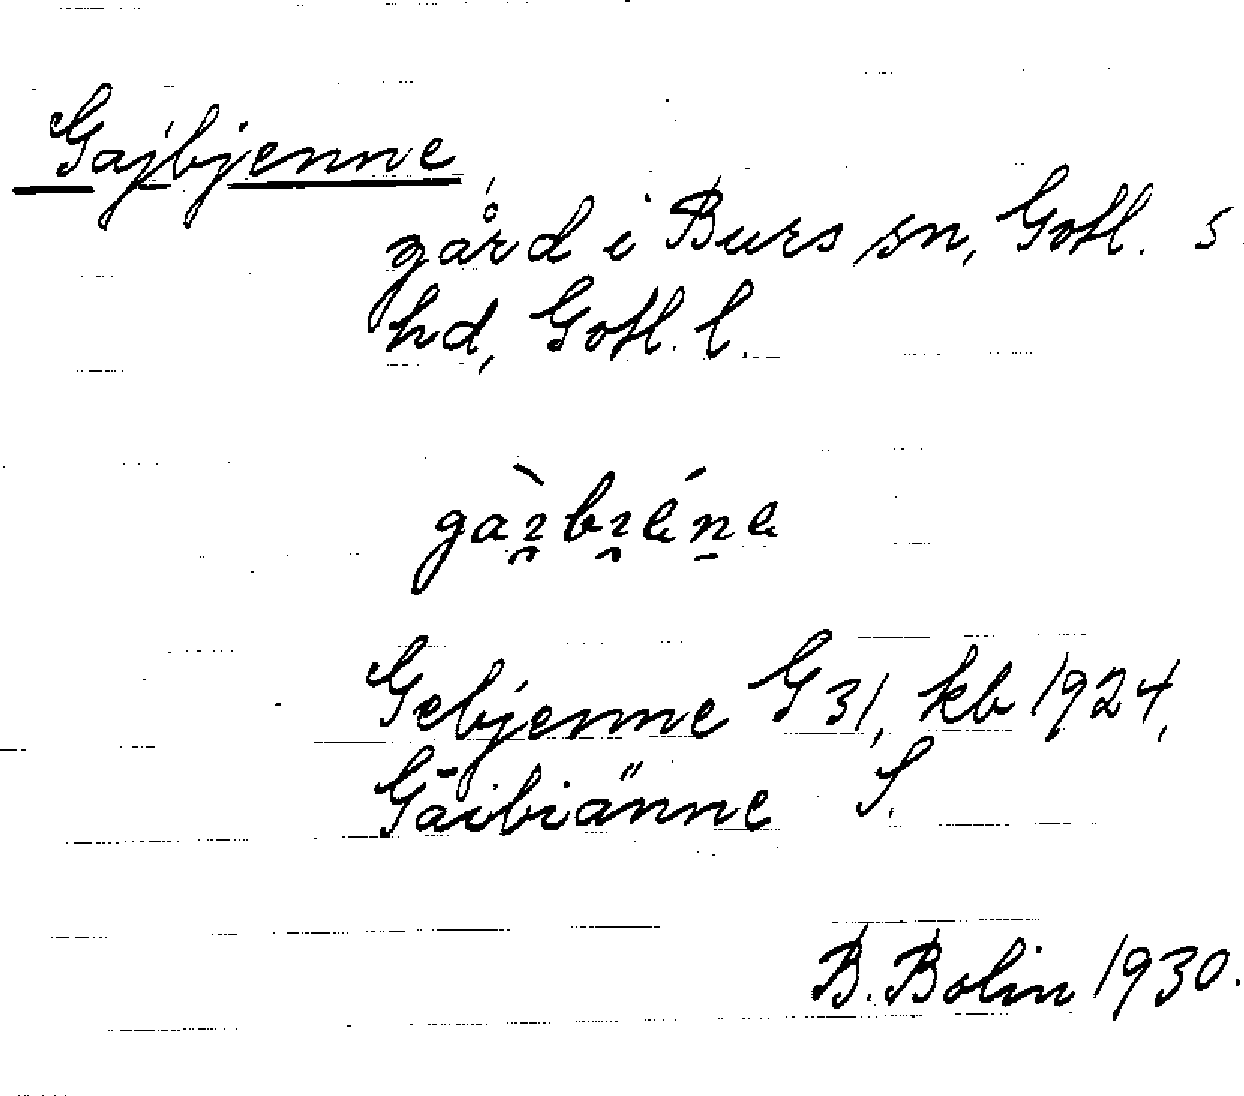 Gajbjenne
gård i Burs sn, Gotl. s
hd, Gotl. l.
Gebjenne G 31, kb 1924,
Gāibiänne S.
B. Bolin 1930.